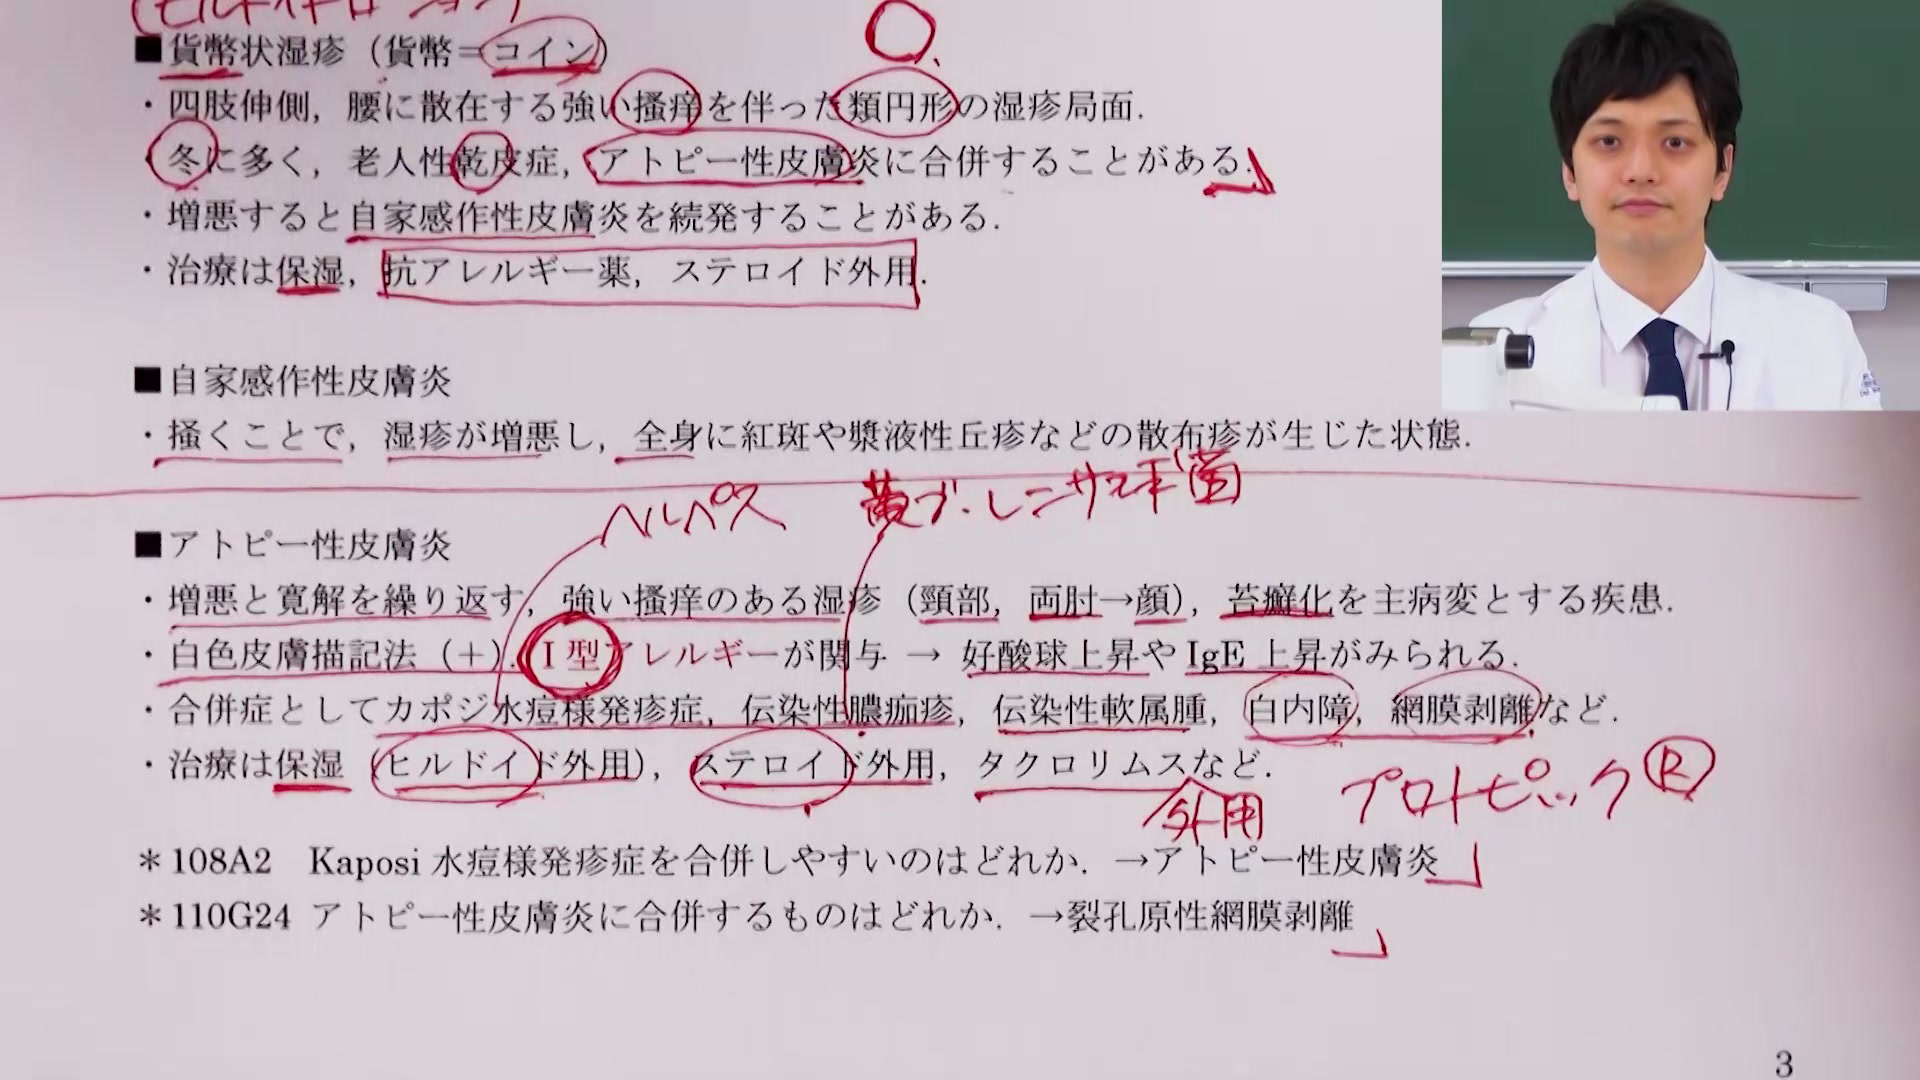 (ヒルドイドローション)
■貨幣状湿疹（貨幣＝コイン）
・四肢伸側，腰に散在する強い掻痒を伴った類円形の湿疹局面．
・冬に多く，老人性乾皮症，アトピー性皮膚炎に合併することがある．
・増悪すると自家感作性皮膚炎を続発することがある．
・治療は保湿，抗アレルギー薬，ステロイド外用．
■自家感作性皮膚炎
・掻くことで，湿疹が増悪し，全身に紅斑や漿液性丘疹などの散布疹が生じた状態．
ヘルペス 黄ブ・レンサ球菌
■アトピー性皮膚炎
・増悪と寛解を繰り返す，強い掻痒のある湿疹（頸部，両肘→顔），苔癬化を主病変とする疾患．
・白色皮膚描記法（＋）．Ⅰ型アレルギーが関与 → 好酸球上昇や IgE 上昇がみられる．
・合併症としてカポジ水痘様発疹症，伝染性膿痂疹，伝染性軟属腫，白内障，網膜剥離など．
・治療は保湿（ヒルドイド外用），ステロイド外用，タクロリムスなど．
外用 プロトピック®
＊108A2 Kaposi 水痘様発疹症を合併しやすいのはどれか．→アトピー性皮膚炎
＊110G24 アトピー性皮膚炎に合併するものはどれか．→裂孔原性網膜剥離
3